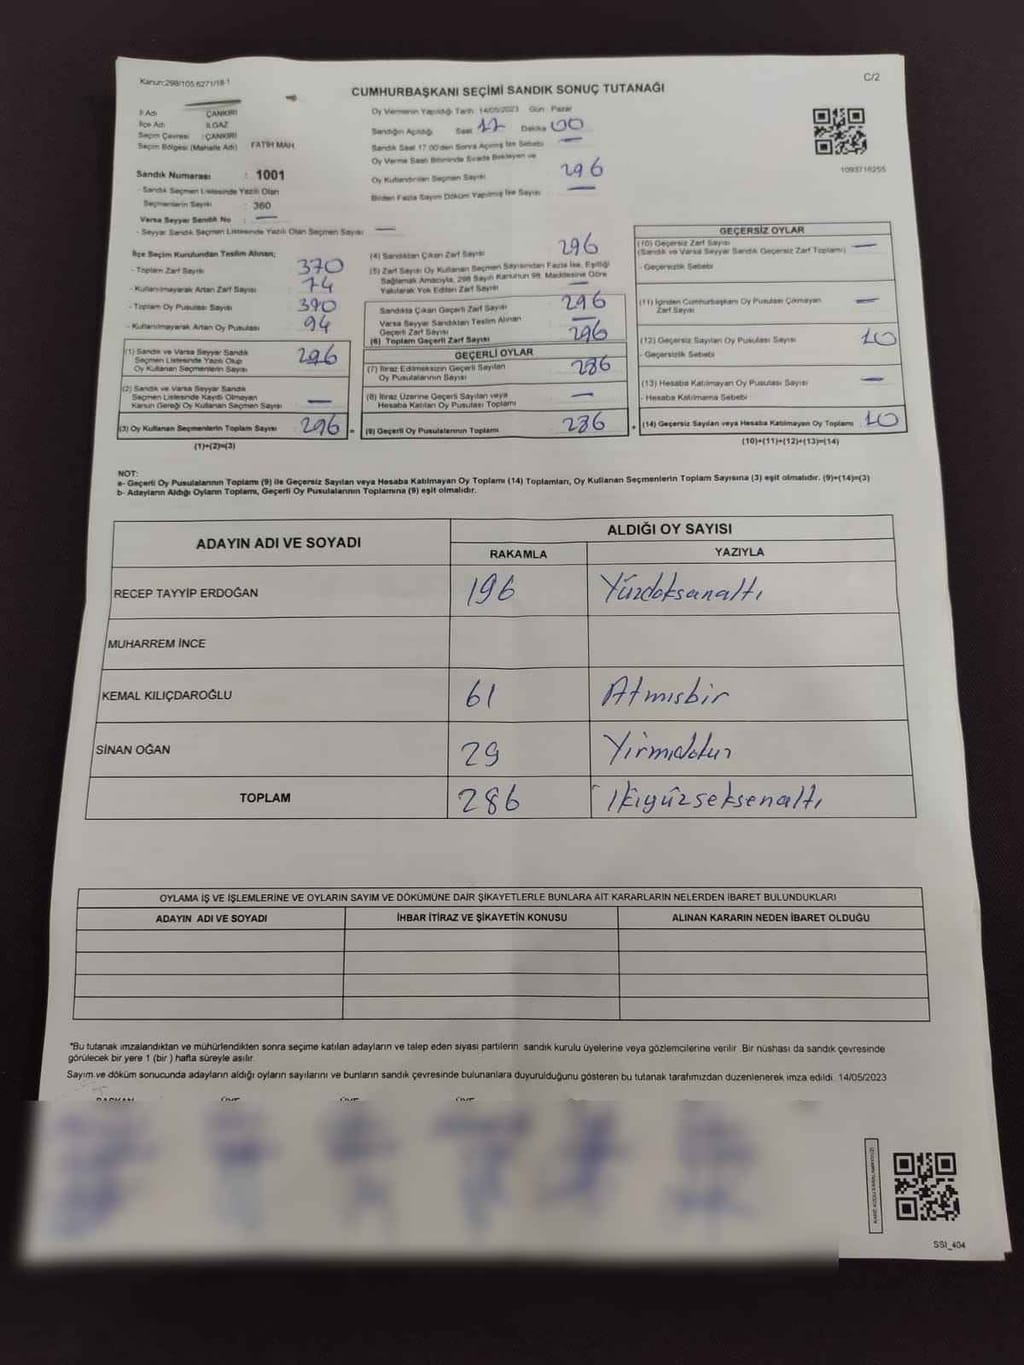 Kanun:298/105.6271/18-1
C/2
CUMHURBAŞKANI SEÇİMİ SANDIK SONUÇ TUTANAĞI
İl Adı ÇANKIRI
İlçe Adı ILGAZ
Seçim Çevresi : ÇANKIRI
Seçim Bölgesi (Mahalle Adı) FATİH MAH.
Sandık Numarası : 1001
- Sandık Seçmen Listesinde Yazılı Olan
Seçmenlerin Sayısı : 360
Varsa Seyyar Sandık No : —
- Seyyar Sandık Seçmen Listesinde Yazılı Olan Seçmen Sayısı —
Oy Vermenin Yapıldığı Tarih 14/05/2023 Gün Pazar
Sandığın Açıldığı Saat 17 Dakika 00
Sandık Saat 17.00'den Sonra Açılmış İse Sebebi —
Oy Verme Saati Bitiminde Sırada Bekleyen ve
Oy Kullandırılan Seçmen Sayısı 296
Birden Fazla Sayım Döküm Yapılmış İse Sayısı —
1093716255
İlçe Seçim Kurulundan Teslim Alınan;
- Toplam Zarf Sayısı 370
- Kullanılmayarak Artan Zarf Sayısı 74
- Toplam Oy Pusulası Sayısı 390
- Kullanılmayarak Artan Oy Pusulası 94
(1) Sandık ve Varsa Seyyar Sandık
Seçmen Listesinde Yazılı Olup
Oy Kullanan Seçmenlerin Sayısı 296
(2) Sandık ve Varsa Seyyar Sandık
Seçmen Listesinde Kaydı Olmayan
Kanun Gereği Oy Kullanan Seçmen Sayısı —
(3) Oy Kullanan Seçmenlerin Toplam Sayısı 296 =
(1)+(2)=(3)
(4) Sandıktan Çıkan Zarf Sayısı 296
(5) Zarf Sayısı Oy Kullanan Seçmen Sayısından Fazla İse, Eşitliği
Sağlamak Amacıyla, 298 Sayılı Kanunun 98. Maddesine Göre
Yakılarak Yok Edilen Zarf Sayısı —
Sandıkta Çıkan Geçerli Zarf Sayısı 296
Varsa Seyyar Sandıktan Teslim Alınan
Geçerli Zarf Sayısı —
(6) Toplam Geçerli Zarf Sayısı 296
GEÇERLİ OYLAR
(7) İtiraz Edilmeksizin Geçerli Sayılan
Oy Pusulalarının Sayısı 286
(8) İtiraz Üzerine Geçerli Sayılan veya
Hesaba Katılan Oy Pusulası Toplamı —
(9) Geçerli Oy Pusulalarının Toplamı 286 +
GEÇERSİZ OYLAR
(10) Geçersiz Zarf Sayısı
(Sandık ve Varsa Seyyar Sandık Geçersiz Zarf Toplamı) —
- Geçersizlik Sebebi
(11) İçinden Cumhurbaşkanı Oy Pusulası Çıkmayan
Zarf Sayısı —
(12) Geçersiz Sayılan Oy Pusulası Sayısı 10
- Geçersizlik Sebebi
(13) Hesaba Katılmayan Oy Pusulası Sayısı —
- Hesaba Katılmama Sebebi
(14) Geçersiz Sayılan veya Hesaba Katılmayan Oy Toplamı 10
(10)+(11)+(12)+(13)=(14)
NOT:
a- Geçerli Oy Pusulalarının Toplamı (9) ile Geçersiz Sayılan veya Hesaba Katılmayan Oy Toplamı (14) Toplamları, Oy Kullanan Seçmenlerin Toplam Sayısına (3) eşit olmalıdır. (9)+(14)=(3)
b- Adayların Aldığı Oyların Toplamı, Geçerli Oy Pusulalarının Toplamına (9) eşit olmalıdır.
ADAYIN ADI VE SOYADI
ALDIĞI OY SAYISI
RAKAMLA YAZIYLA
RECEP TAYYİP ERDOĞAN 196 Yüzdoksanaltı
MUHARREM İNCE
KEMAL KILIÇDAROĞLU 61 Atmışbir
SİNAN OĞAN 29 Yirmidokuz
TOPLAM 286 İkiyüzseksenaltı
OYLAMA İŞ VE İŞLEMLERİNE VE OYLARIN SAYIM VE DÖKÜMÜNE DAİR ŞİKAYETLERLE BUNLARA AİT KARARLARIN NELERDEN İBARET BULUNDUKLARI
ADAYIN ADI VE SOYADI İHBAR İTİRAZ VE ŞİKAYETİN KONUSU ALINAN KARARIN NEDEN İBARET OLDUĞU
*Bu tutanak imzalandıktan ve mühürlendikten sonra seçime katılan adayların ve talep eden siyasi partilerin sandık kurulu üyelerine veya gözlemcilerine verilir. Bir nüshası da sandık çevresinde
görülecek bir yere 1 (bir ) hafta süreyle asılır.
Sayım ve döküm sonucunda adayların aldığı oyların sayılarını ve bunların sandık çevresinde bulunanlara duyurulduğunu gösteren bu tutanak tarafımızdan düzenlenerek imza edildi. 14/05/2023
BAŞKAN ÜYE ÜYE ÜYE
SSI_404